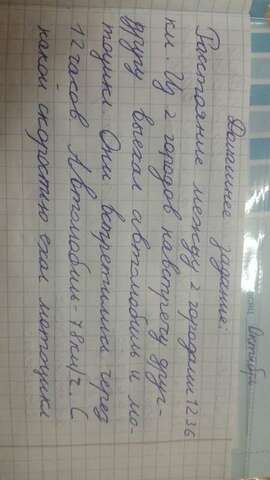 Октября
Домашнее задание:
Расстояние между 2 городами 1236
км. Из 2 городов навстречу друг-
другу выехал автомобиль и мо-
тоцикл. Они встретились через
12 часов. Автомобиль - 78 км/ч. С
какой скоростью ехал мотоцикл